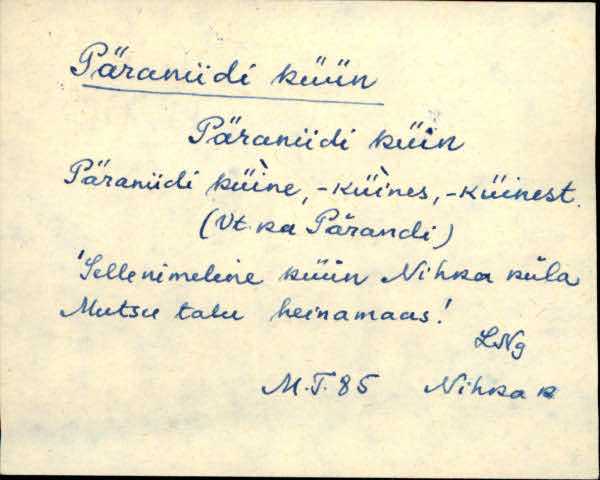 Päraniidi küün
Päraniidi küin
Päraniidi küìne, -küìnes, -küinest.
(Vt. ka Pärandi)
'Sellenimeline küün Nihka küla
Mutsu talu heinamaas!
LNg
M.T. 85 Nihka k